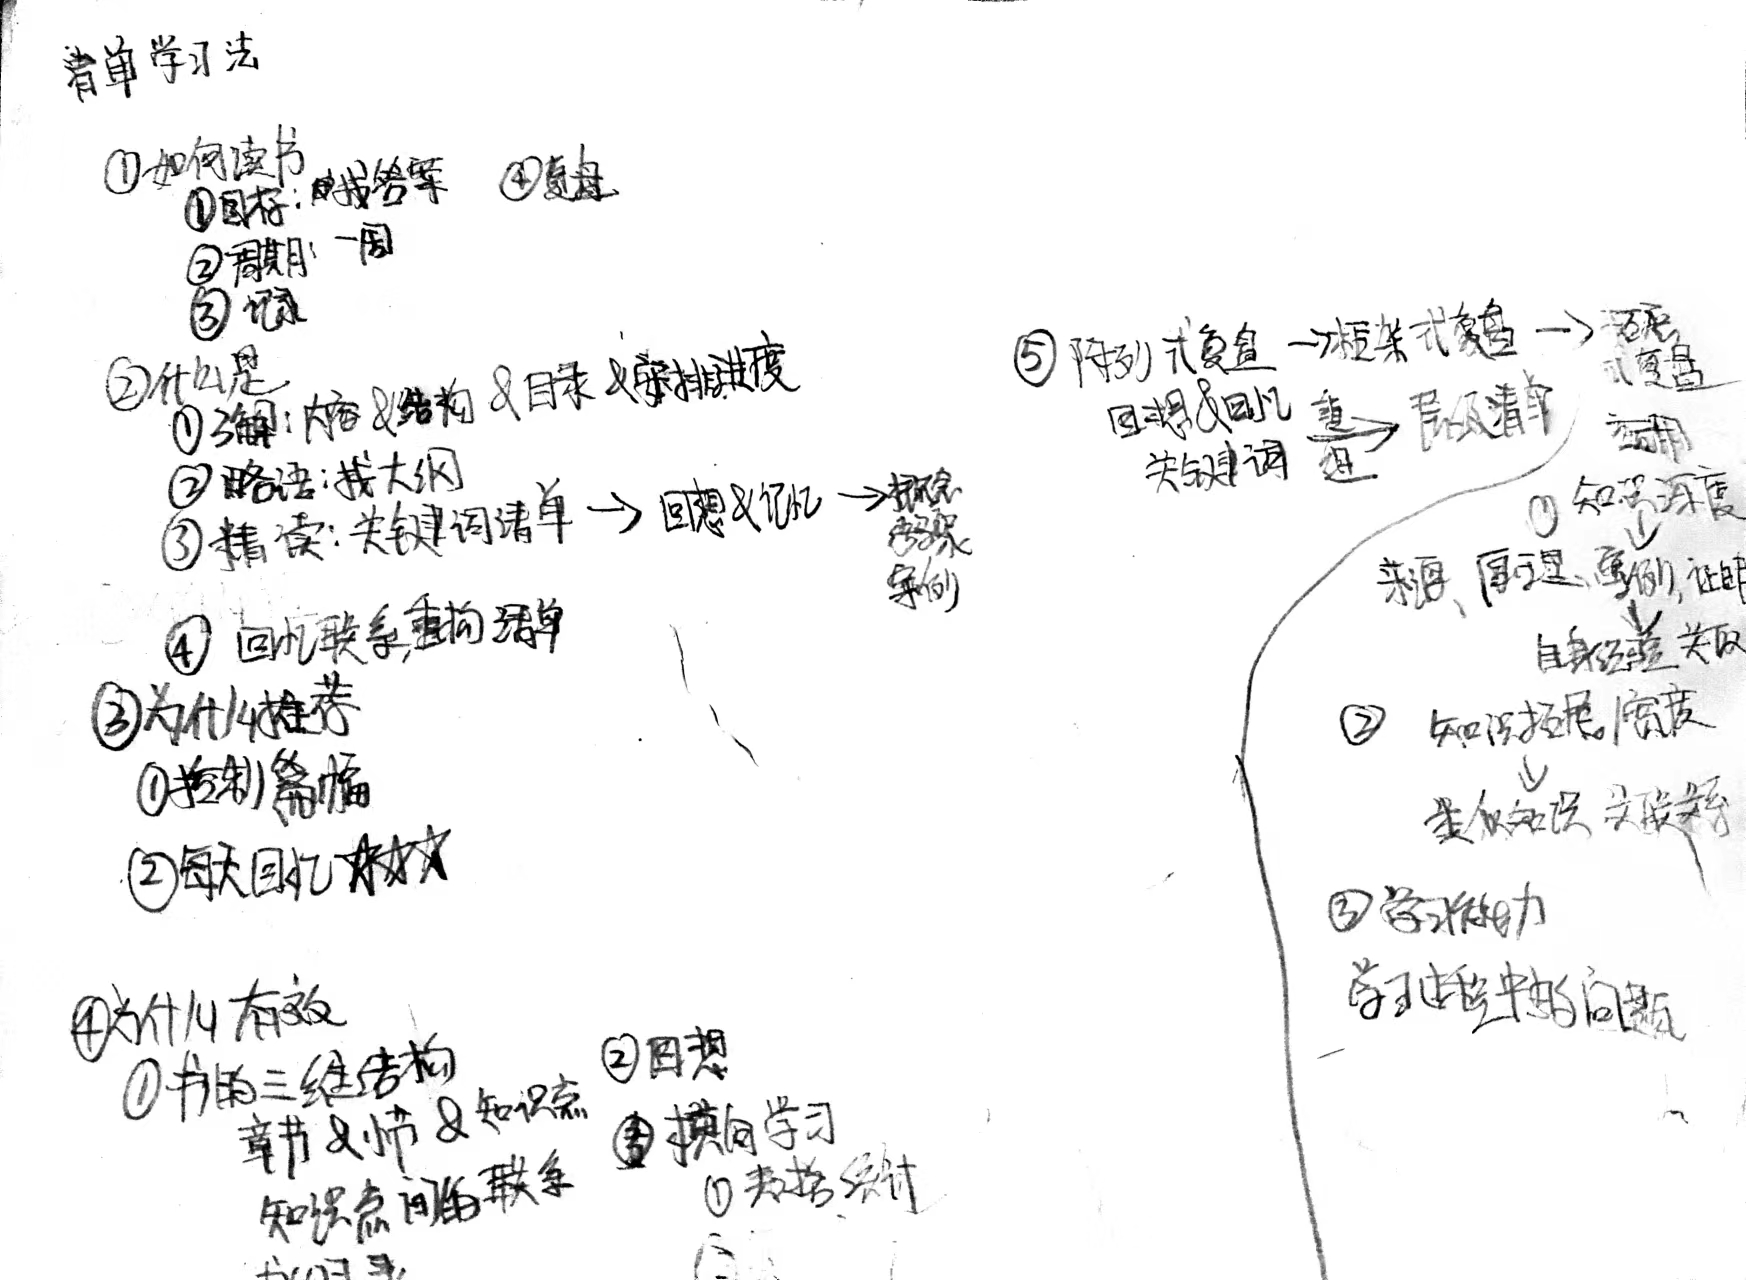 清单学习法
①如何读书
①目标：找答案
④复盘
②周期：一周
③记录
②什么是
①了解：内容&结构&目录&安排进度
②略语：找大纲
③精读：关键词清单→回想&记忆→概念
案例
④回忆联系,重构清单
③为什么推荐
①控制篇幅
②每天回忆☆☆☆
④为什么有效
①书的三维结构
章节&小节&知识点
知识点间的联系
②回想
③横向学习
①数据统计
⑤阵列式复盘→框架式复盘→拓展
式复盘
回想&回忆 重组→ 层级清单
关键词
应用
①知识深度
↓
来源、原理、案例,证明
↓
自身经验 关联
②知识拓展/宽度
↓
类似知识 关联关系
③学习能力
学习过程中的问题